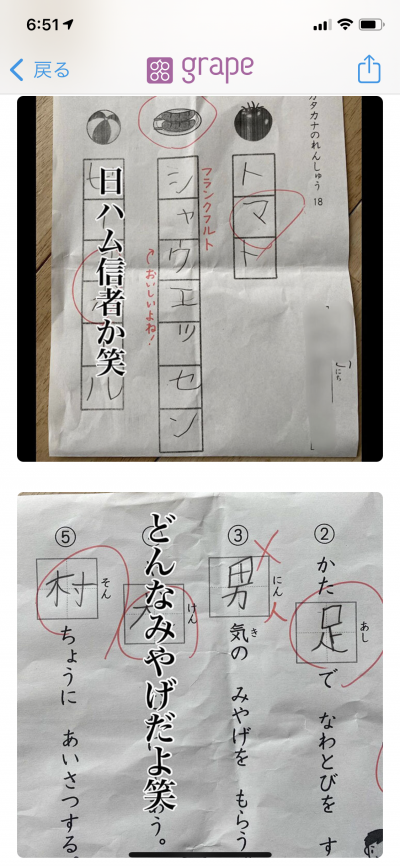 6:51
戻る
grape
カタカナのれんしゅう 18
トマト
フランクフルト
シャウエッセン
おいしいよね!
日ハム信者か笑
ル
にち
②
かた足で なわとびを す
あし
③
男気の みやげを もらう
にん
き
人
どんなみやげだよ笑
けん
う。
⑤
村ちょうに あいさつする。
そん